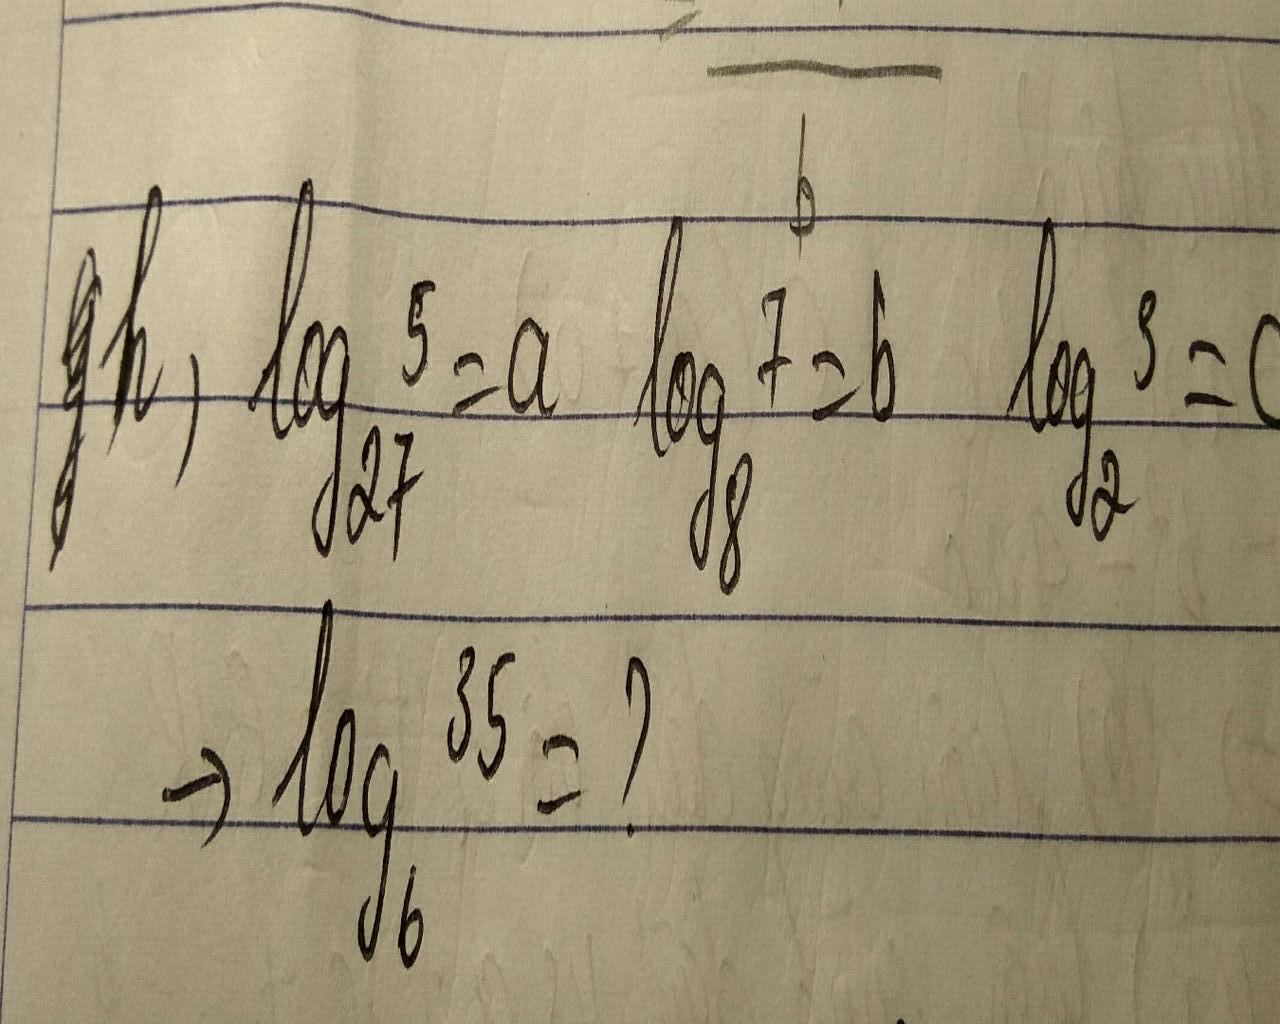 b
h, log₂₇ 5 = a log₈ 7 = b log₂ 3 = c
→ log₆ 35 = ?